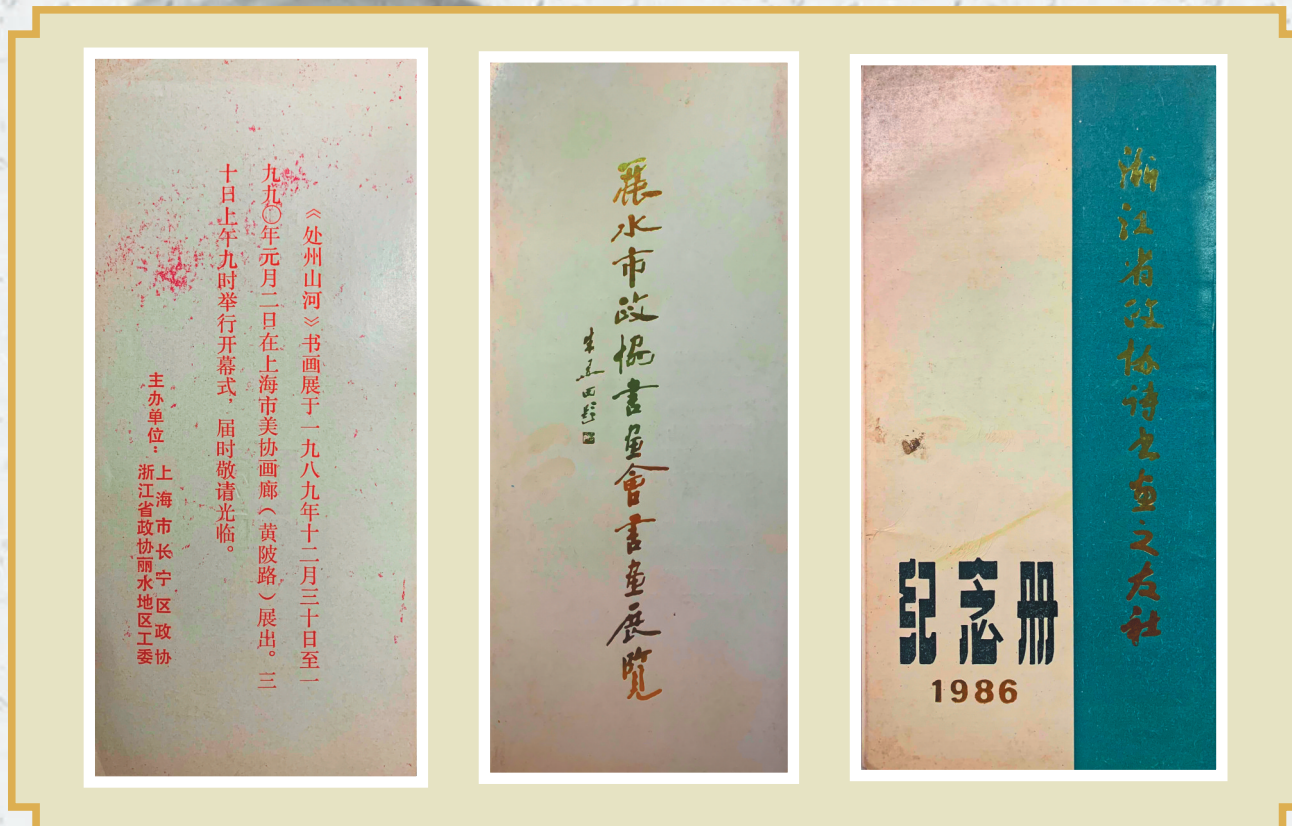 《处州山河》书画展于一九八九年十二月三十日至一
九九〇年元月二日在上海市美协画廊（黄陂路）展出。三
十日上午九时举行开幕式，届时敬请光临。
主办单位：
上海市长宁区政协
浙江省政协丽水地区工委
麗水市政協書畫會書畫展覽
浙江省政协诗书画之友社
纪念册
1986